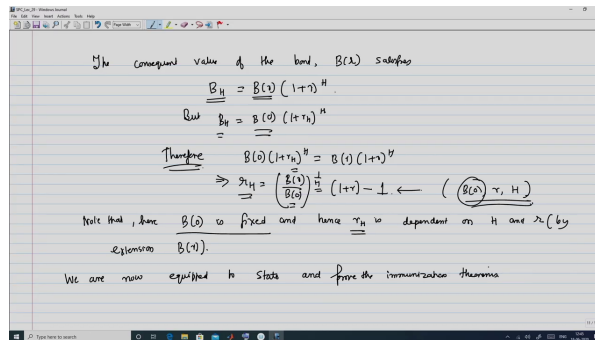 SPC_Lec_29 - Windows Journal
File Edit View Insert Actions Tools Help
Page Width
The consequent value of the bond, B(r) satisfies
B_H = B(r) (1+r)^H.
But B_H = B(0) (1+r_H)^H
Therefore B(0) (1+r_H)^H = B(r) (1+r)^H
⇒ r_H = (B(r)/B(0))^(1/H) (1+r) - 1 ← (B(0) r, H)
Note that, here B(0) is fixed and hence r_H is dependent on H and r (by
extension B(r)).
We are now equipped to state and prove the immunization theorems
Type here to search
ENG